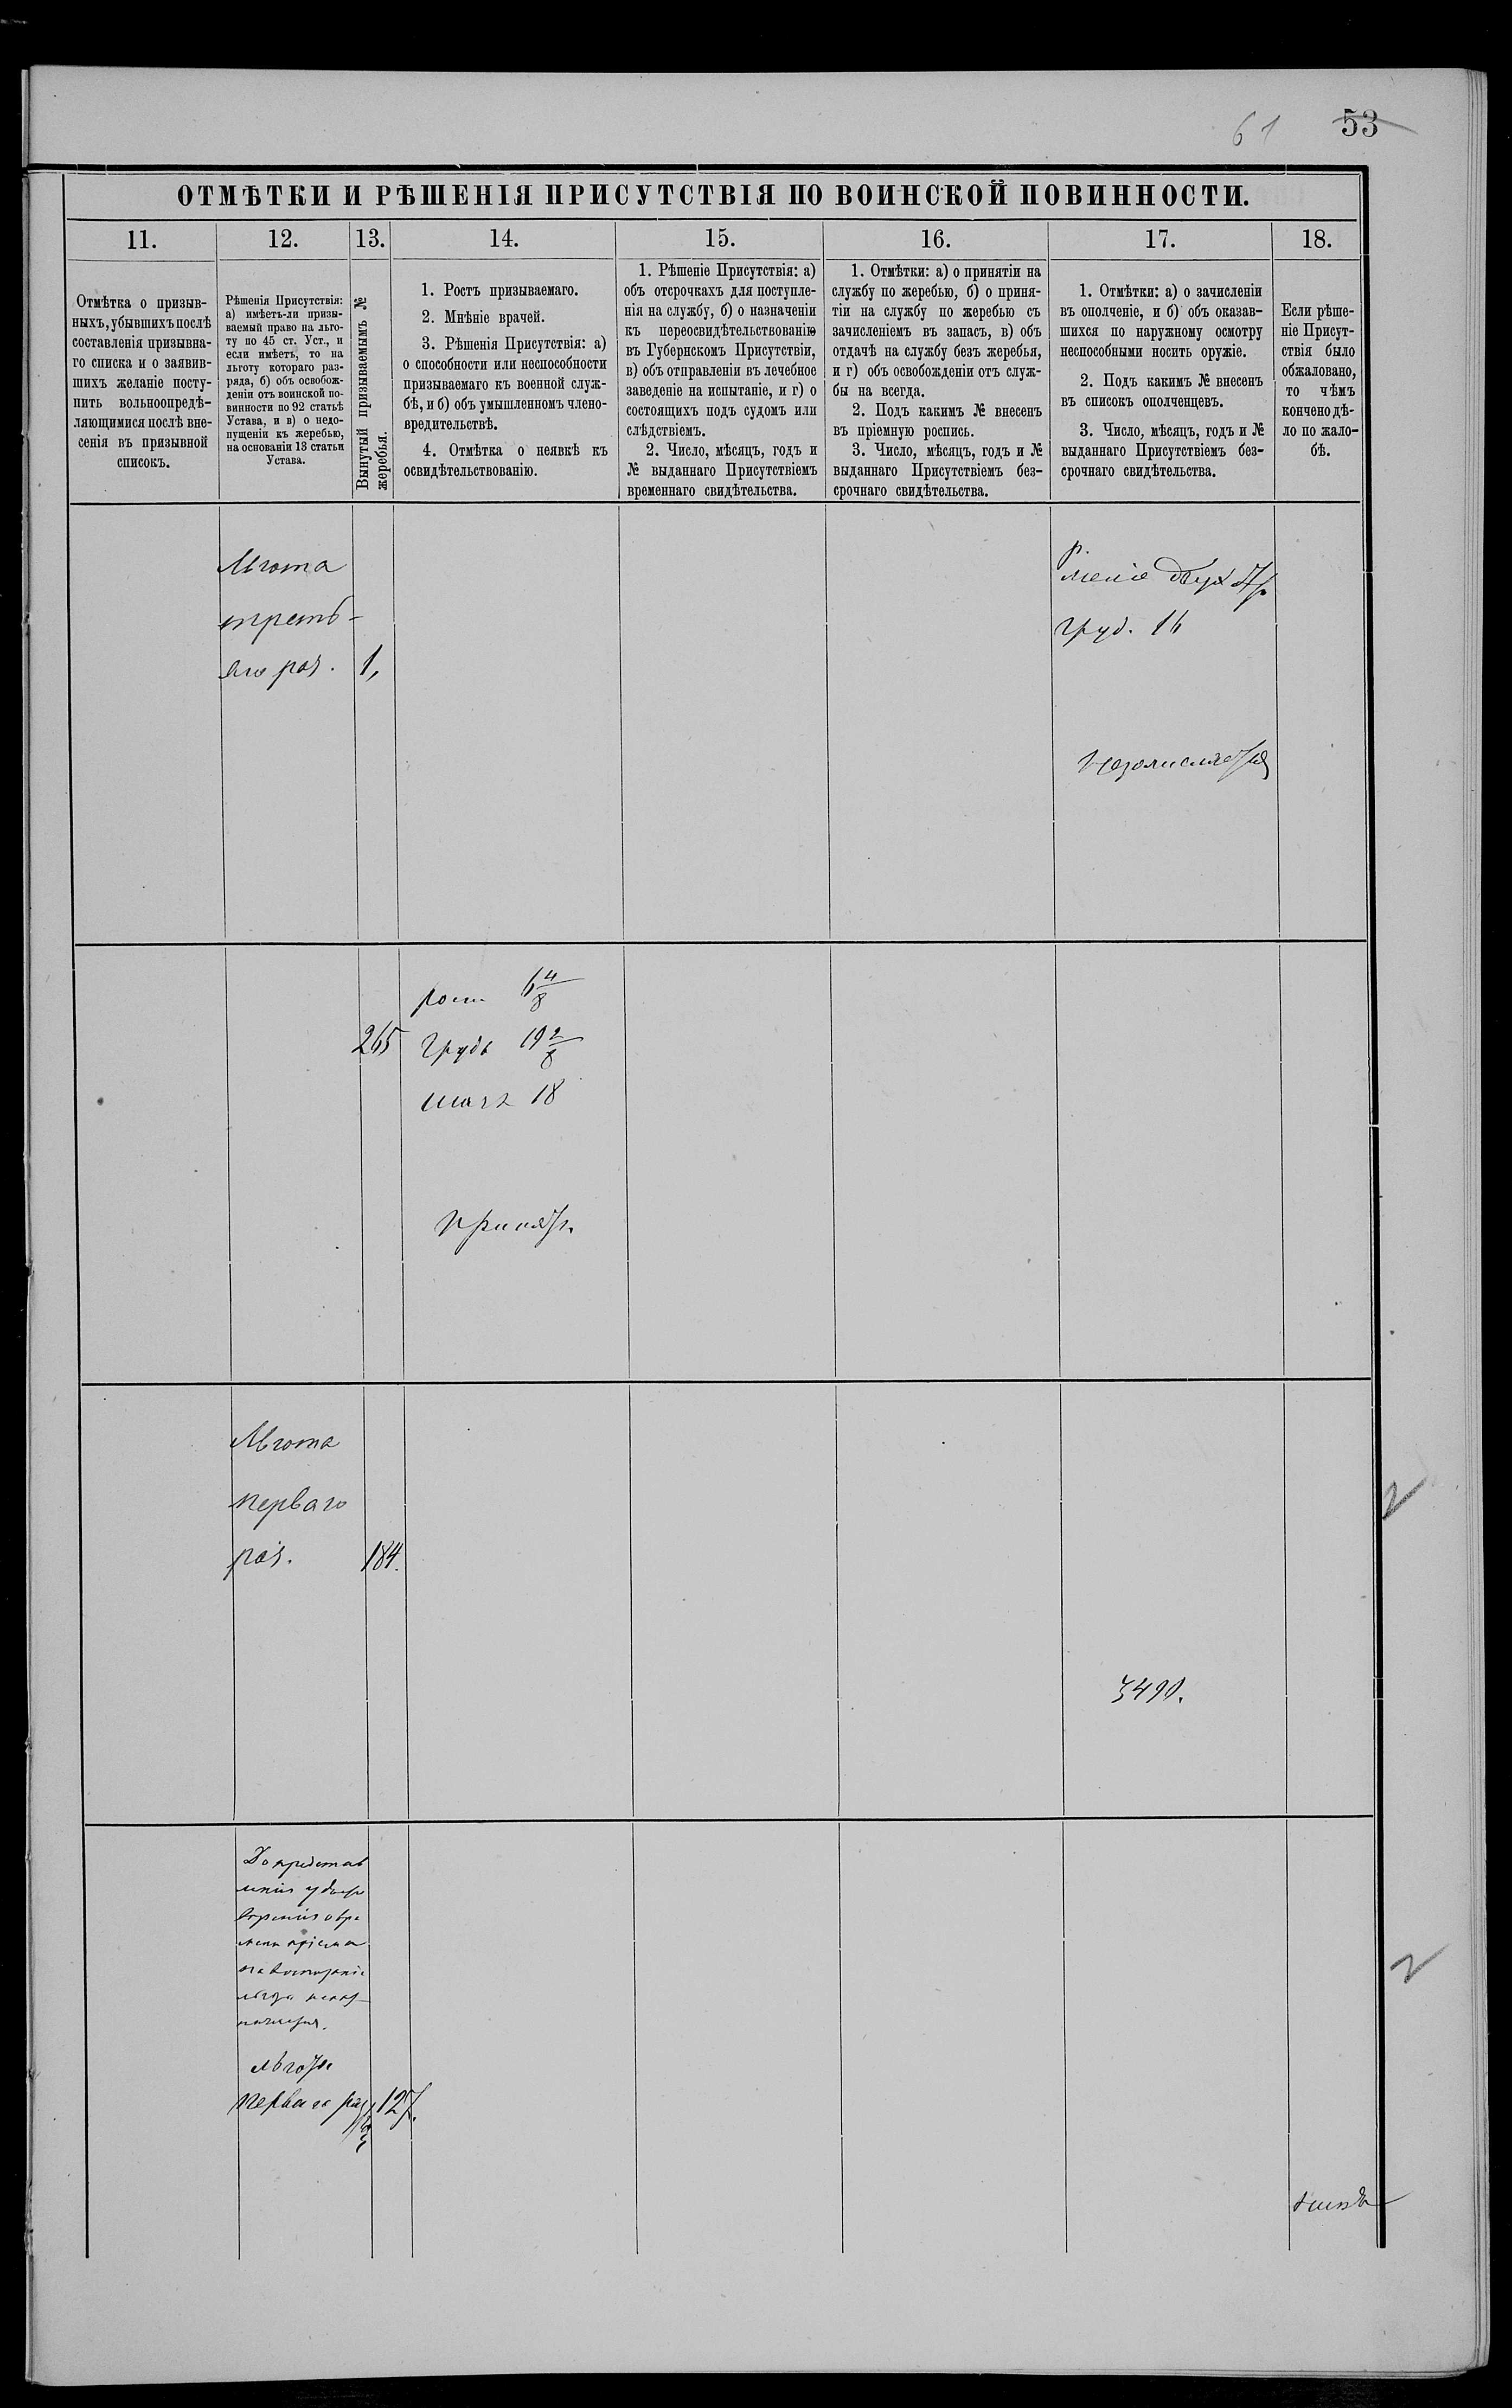 61 53
ОТМѢТКИ И РѢШЕНІЯ ПРИСУТСТВІЯ ПО ВОИНСКОЙ ПОВИННОСТИ.
11.
12.
13.
14.
15.
16.
17.
18.
Отмѣтка о призыв-
ныхъ, убывшихъ послѣ
составленія призывна-
го списка и о заявив-
шихъ желаніе посту-
пить вольноопредѣ-
ляющимися послѣ вне-
сенія въ призывной
списокъ.
Рѣшенія Присутствія:
а) имѣетъ-ли призы-
ваемый право на льго-
ту по 45 ст. Уст., и
если имѣетъ, то на
льготу котораго раз-
ряда, б) объ освобож-
деніи отъ воинской по-
винности по 92 статьѣ
Устава, и в) о недо-
пущеніи къ жеребью,
на основаніи 13 статьи
Устава.
Вынутый призываемымъ №
жеребья.
1. Ростъ призываемаго.
2. Мнѣніе врачей.
3. Рѣшенія Присутствія: а)
о способности или неспособности
призываемаго къ военной служ-
бѣ, и б) объ умышленномъ члено-
вредительствѣ.
4. Отмѣтка о неявкѣ къ
освидѣтельствованію.
1. Рѣшеніе Присутствія: а)
объ отсрочкахъ для поступле-
нія на службу, б) о назначеніи
къ переосвидѣтельствованію
въ Губернскомъ Присутствіи,
в) объ отправленіи въ лечебное
заведеніе на испытаніе, и г) о
состоящихъ подъ судомъ или
слѣдствіемъ.
2. Число, мѣсяцъ, годъ и
№ выданнаго Присутствіемъ
временнаго свидѣтельства.
1. Отмѣтки: а) о принятіи на
службу по жеребью, б) о приня-
тіи на службу по жеребью съ
зачисленіемъ въ запасъ, в) объ
отдачѣ на службу безъ жеребья,
и г) объ освобожденіи отъ служ-
бы на всегда.
2. Подъ какимъ № внесенъ
въ пріемную роспись.
3. Число, мѣсяцъ, годъ и №
выданнаго Присутствіемъ без-
срочнаго свидѣтельства.
1. Отмѣтки: а) о зачисленіи
въ ополченіе, и б) объ оказав-
шихся по наружному осмотру
неспособными носить оружіе.
2. Подъ какимъ № внесенъ
въ списокъ ополченцевъ.
3. Число, мѣсяцъ, годъ и №
выданнаго Присутствіемъ без-
срочнаго свидѣтельства.
Если рѣше-
ніе Присут-
ствія было
обжаловано,
то чѣмъ
кончено дѣ-
ло по жало-
бѣ.
Льгота
треть-
яго раз. 1,
р.
менѣе двух
груд. 16
265
рост 6 4/8
грудь 19 2/8
шагъ 18
Принятъ.
Льгота
перваго
раз. 184.
3490.
2
До представ
льгота
перваго раз 127.
2